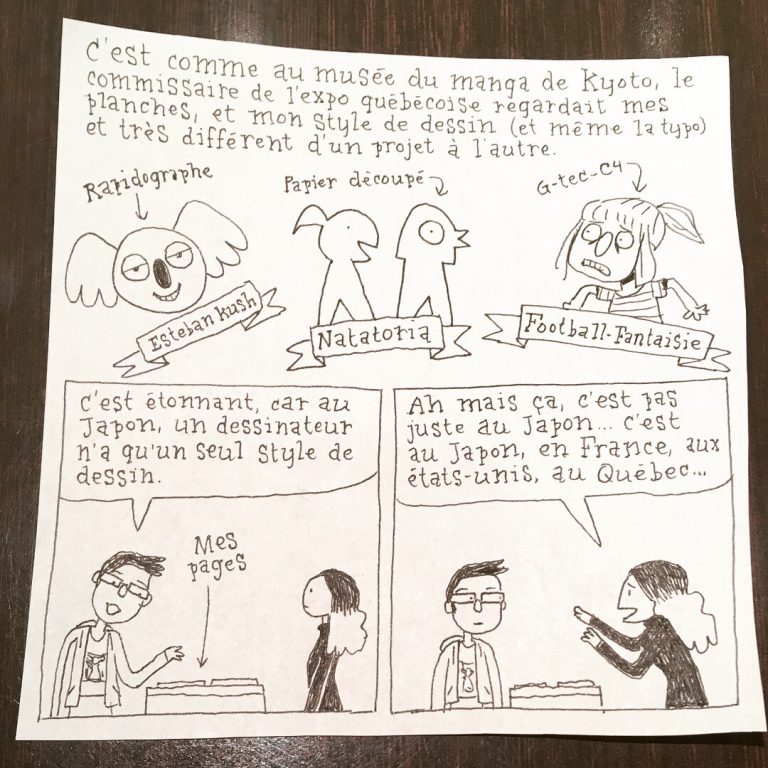 C'est comme au musée du manga de Kyoto, le
commissaire de l'expo québécoise regardait mes
planches, et mon style de dessin (et même la typo)
et très différent d'un projet à l'autre.
Rapidographe
Papier découpé
G-tec-C4
Esteban Kush
Natatoria
Football-Fantaisie
C'est étonnant, car au
Japon, un dessinateur
n'a qu'un seul style de
dessin.
Ah mais ça, c'est pas
juste au Japon... c'est
au Japon, en France, aux
états-unis, au Québec...
Mes
pages